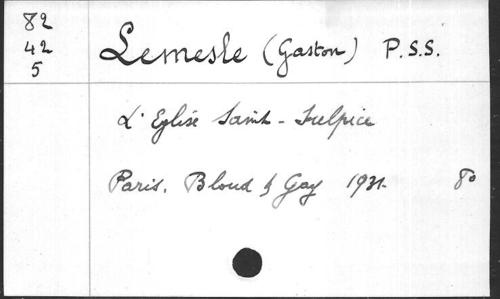 82
42
5
Lemesle (Gaston) P.S.S.
L'Eglise Saint-Sulpice
Paris. Bloud & Gay 1931. 8°